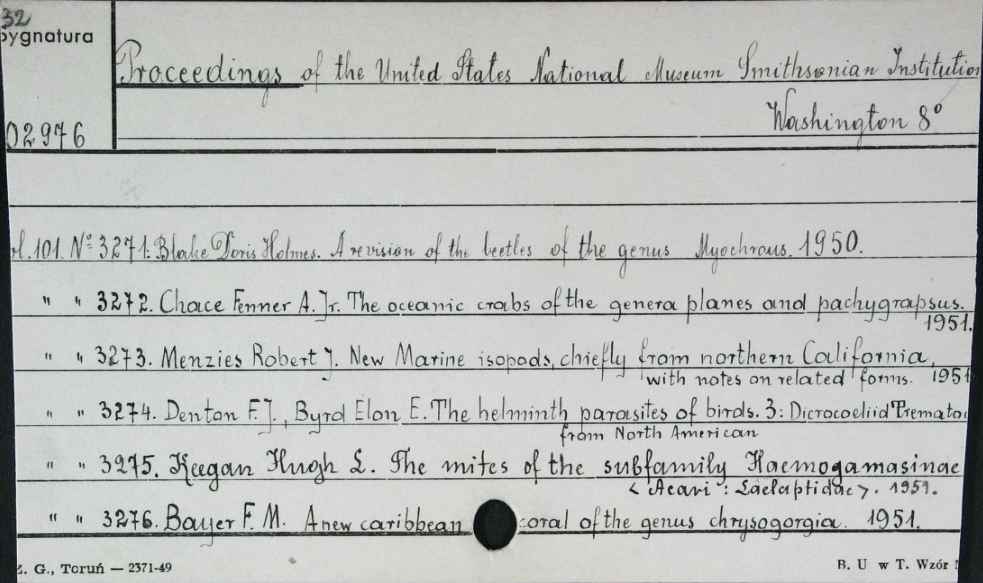 32
Sygnatura
02976
Proceedings of the United States National Museum Smithsonian Institution
Washington 8°
l. 101. № 3271. Blake Doris Holmes. A revision of the beetles of the genus Myochrous. 1950.
" " 3272. Chace Fenner A. Jr. The oceanic crabs of the genera planes and pachygrapsus.
1951.
" " 3273. Menzies Robert J. New Marine isopods, chiefly from northern California,
with notes on related forms. 1951
" " 3274. Denton F. J., Byrd Elon E. The helminth parasites of birds. 3: Dicrocoeliid Tremato
from North American
" " 3275. Keegan Hugh L. The mites of the subfamily Haemogamasinae
< Acari : Laelaptidae >. 1951.
" " 3276. Bayer F. M. A new caribbean coral of the genus chrysogorgia. 1951.
Z. G., Toruń — 2371-49
B. U w T. Wzór